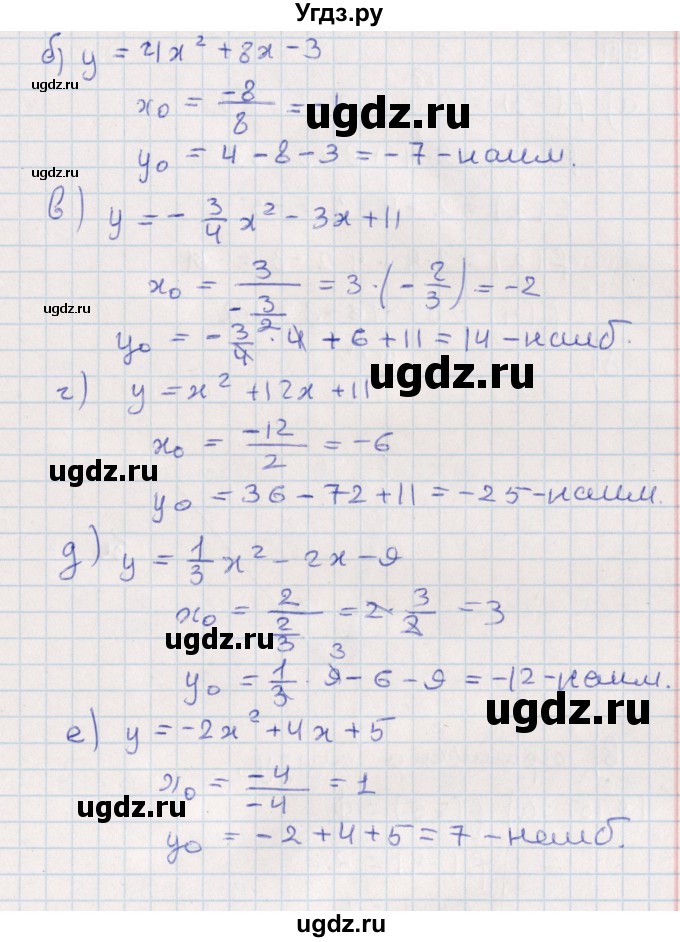 Угдз.ру
б) y = 4x² + 8x - 3
ugdz.ru
x₀ = -8/8 = -1
ugdz.ru
y₀ = 4 - 8 - 3 = -7 - наим.
ugdz.ru
в) y = - 3/4 x² - 3x + 11
x₀ = 3/(-3/2) = 3 · (-2/3) = -2
ugdz.ru
y₀ = - 3/4 · 4 + 6 + 11 = 14 - наиб.
ugdz.ru
г) y = x² + 12x + 11
x₀ = -12/2 = -6
ugdz.ru
y₀ = 36 - 72 + 11 = -25 - наим.
д) y = 1/3 x² - 2x - 9
x₀ = 2/(2/3) = 2 · 3/2 = 3
ugdz.ru
3
y₀ = 1/3 · 9 - 6 - 9 = -12 - наим.
ugdz.ru
е) y = -2x² + 4x + 5
x₀ = -4/-4 = 1
ugdz.ru
y₀ = -2 + 4 + 5 = 7 - наиб.
ugdz.ru
ugdz.ru